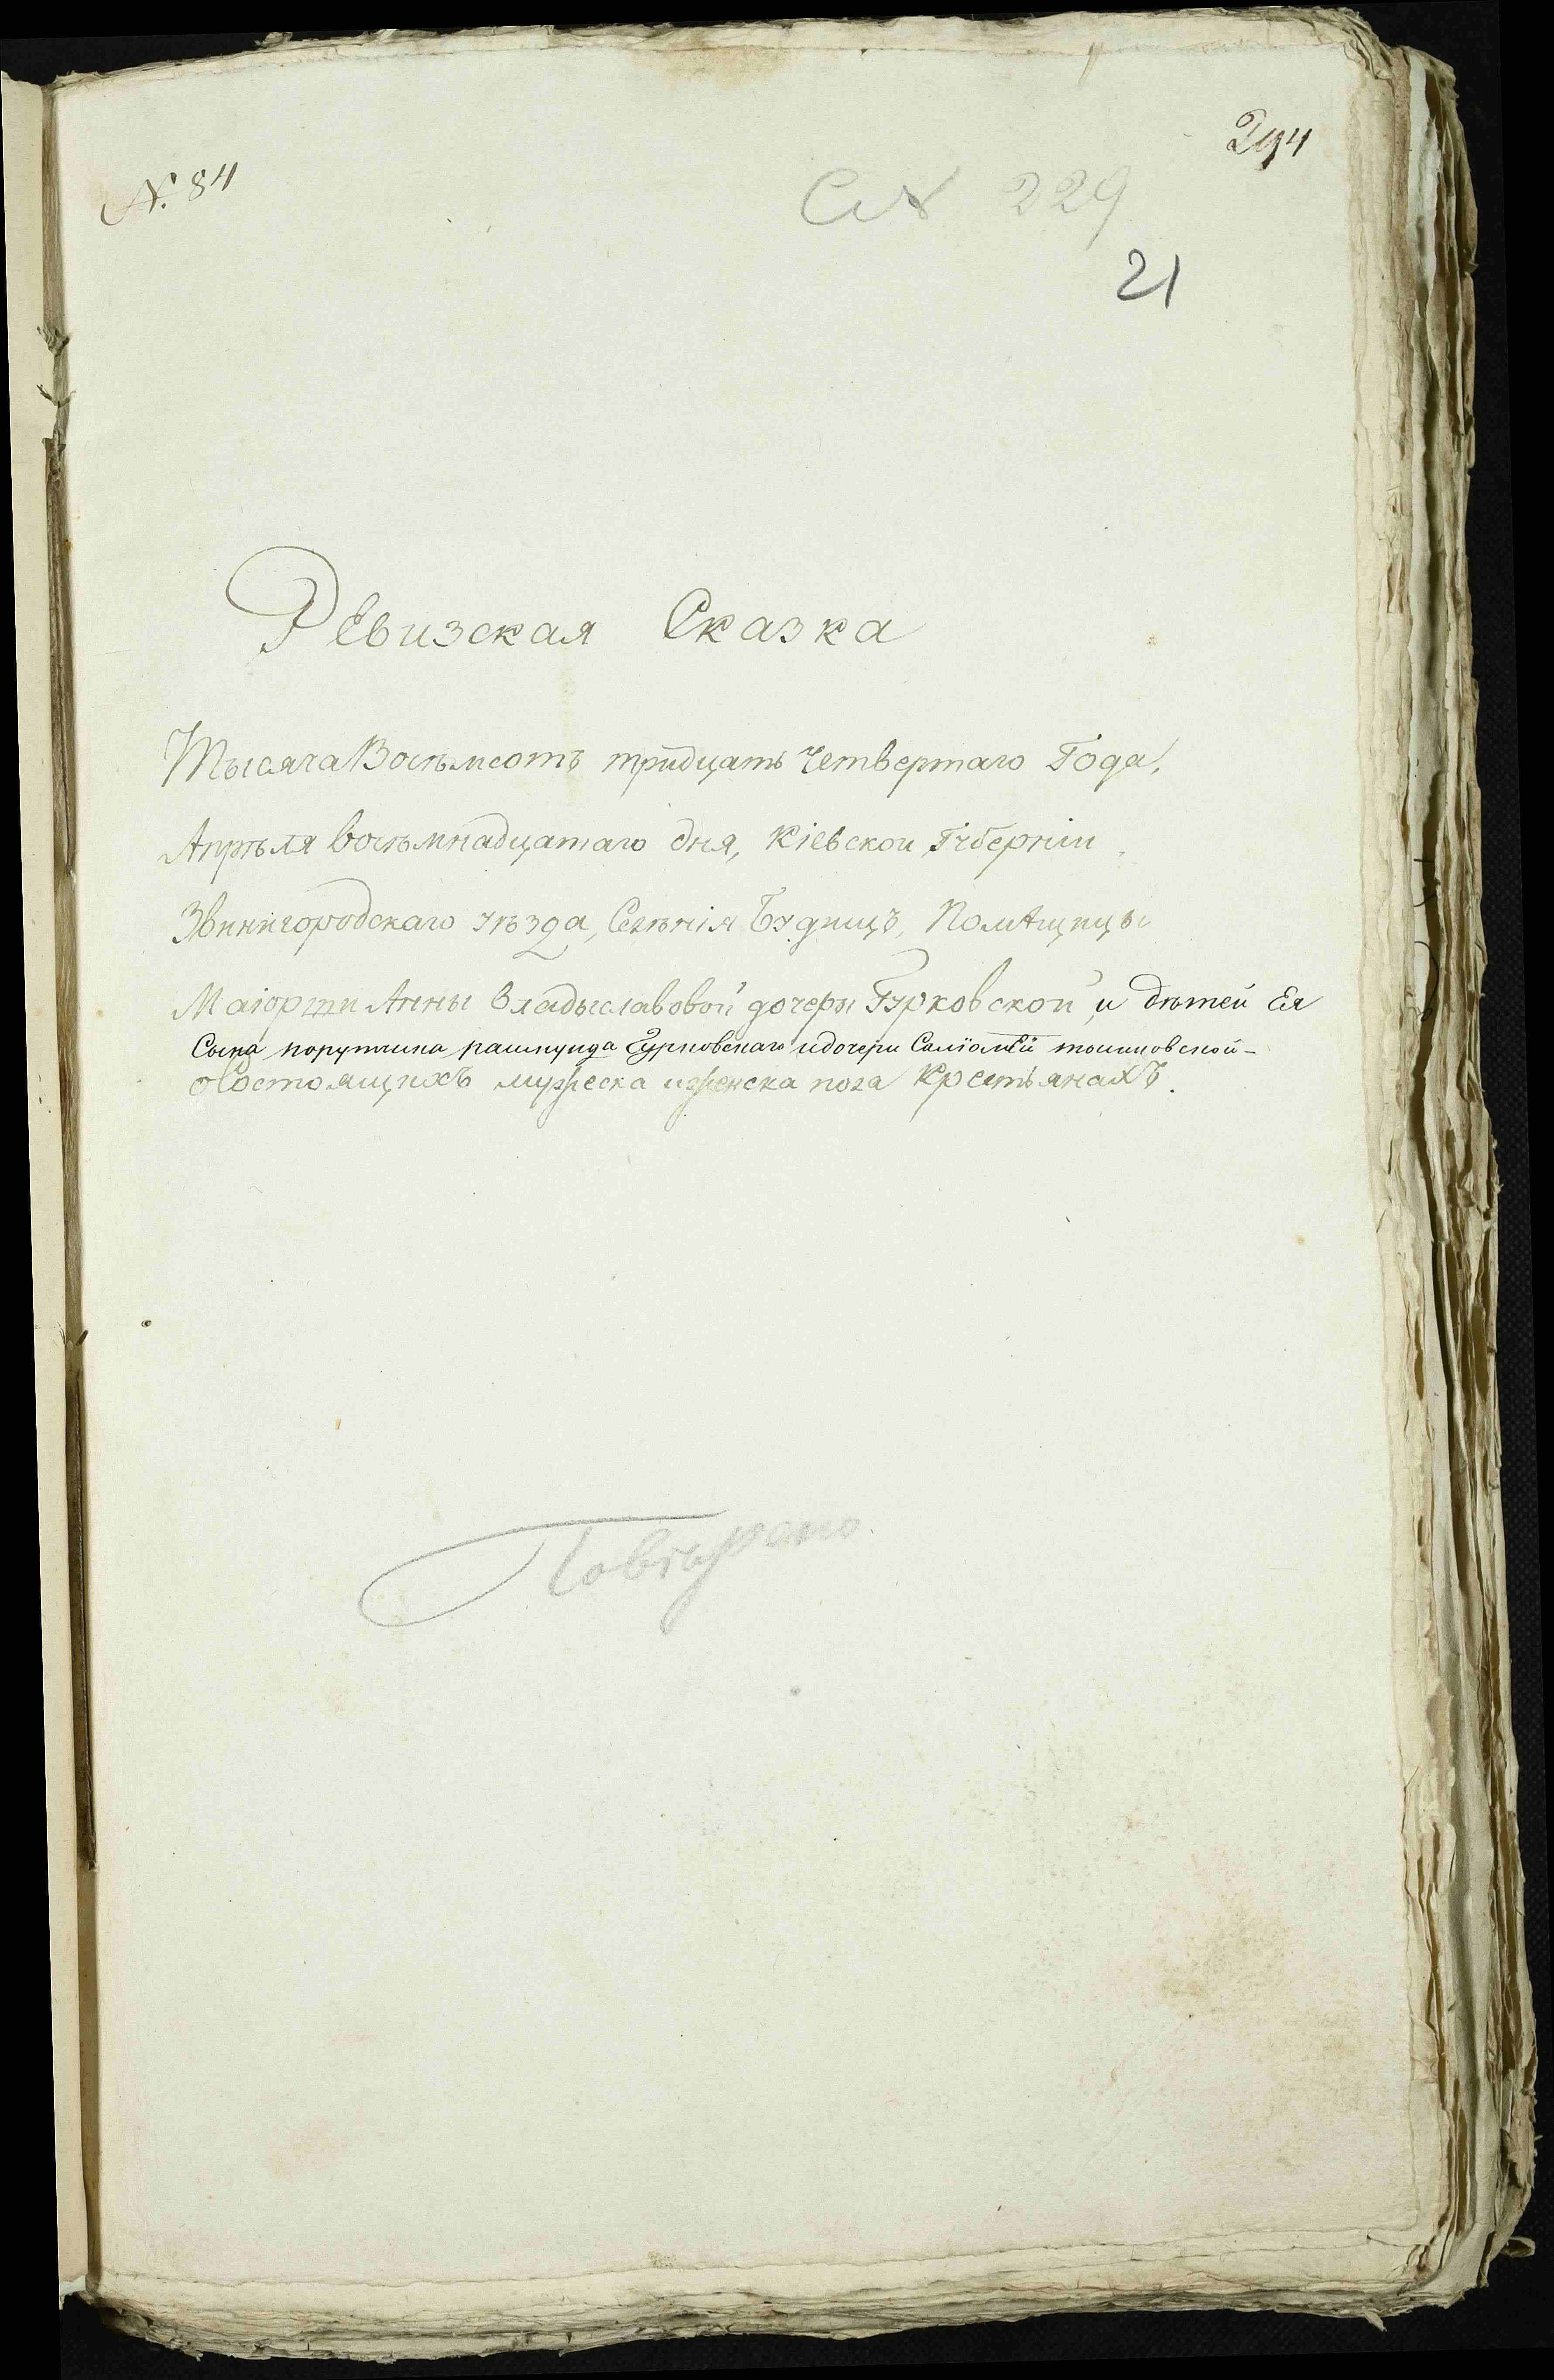 294
№. 84
229
21
Ревизская Сказка
Тысяча Восѣмсотъ тридцать Четвертаго Года,
Апрѣля восѣмнадцатаго дня, Кіевской Губерніи
Звинигородскаго уѣзда, Селѣнія Будищъ, Помѣщицы
Маіорши Анны Владыславовой дочери Гурковской, и дѣтей Ея
Сына порутчика Гурковскаго и дочери
о Состоящихъ мужеска и женска пола Крестьянахъ.